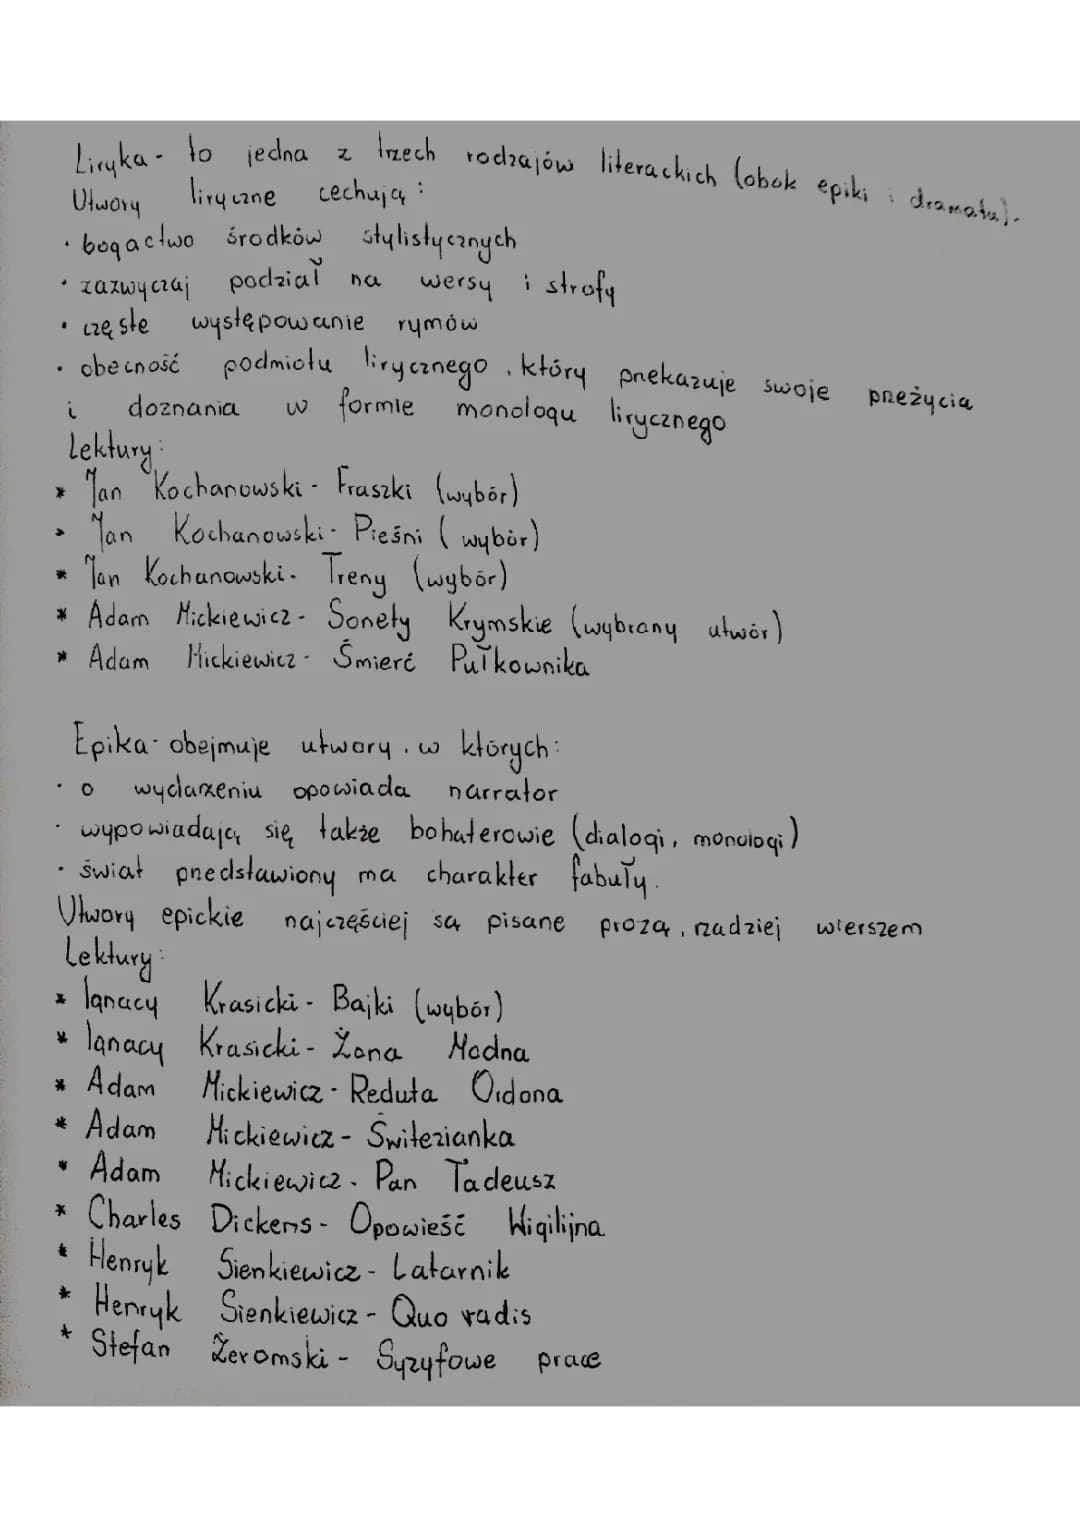 Liryka - to jedna z trzech rodzajów literackich (obok epiki i dramatu).
Utwory liryczne cechują:
· bogactwo środków stylistycznych
· zazwyczaj podział na wersy i strofy
· częste występowanie rymów
· obecność podmiotu lirycznego, który przekazuje swoje przeżycia
i doznania w formie monologu lirycznego
Lektury:
* Jan Kochanowski - Fraszki (wybór)
* Jan Kochanowski - Pieśni (wybór)
* Jan Kochanowski - Treny (wybór)
* Adam Mickiewicz - Sonety Krymskie (wybrany utwór)
* Adam Mickiewicz - Śmierć Pułkownika
Epika - obejmuje utwory, w których:
· o wydarzeniu opowiada narrator
· wypowiadają się także bohaterowie (dialogi, monologi)
· świat przedstawiony ma charakter fabuły.
Utwory epickie najczęściej są pisane prozą, rzadziej wierszem
Lektury:
* Ignacy Krasicki - Bajki (wybór)
* Ignacy Krasicki - Żona Modna
* Adam Mickiewicz - Reduta Ordona
* Adam Mickiewicz - Świtezianka
* Adam Mickiewicz - Pan Tadeusz
* Charles Dickens - Opowieść Wigilijna
* Henryk Sienkiewicz - Latarnik
* Henryk Sienkiewicz - Quo vadis
* Stefan Żeromski - Syzyfowe prace